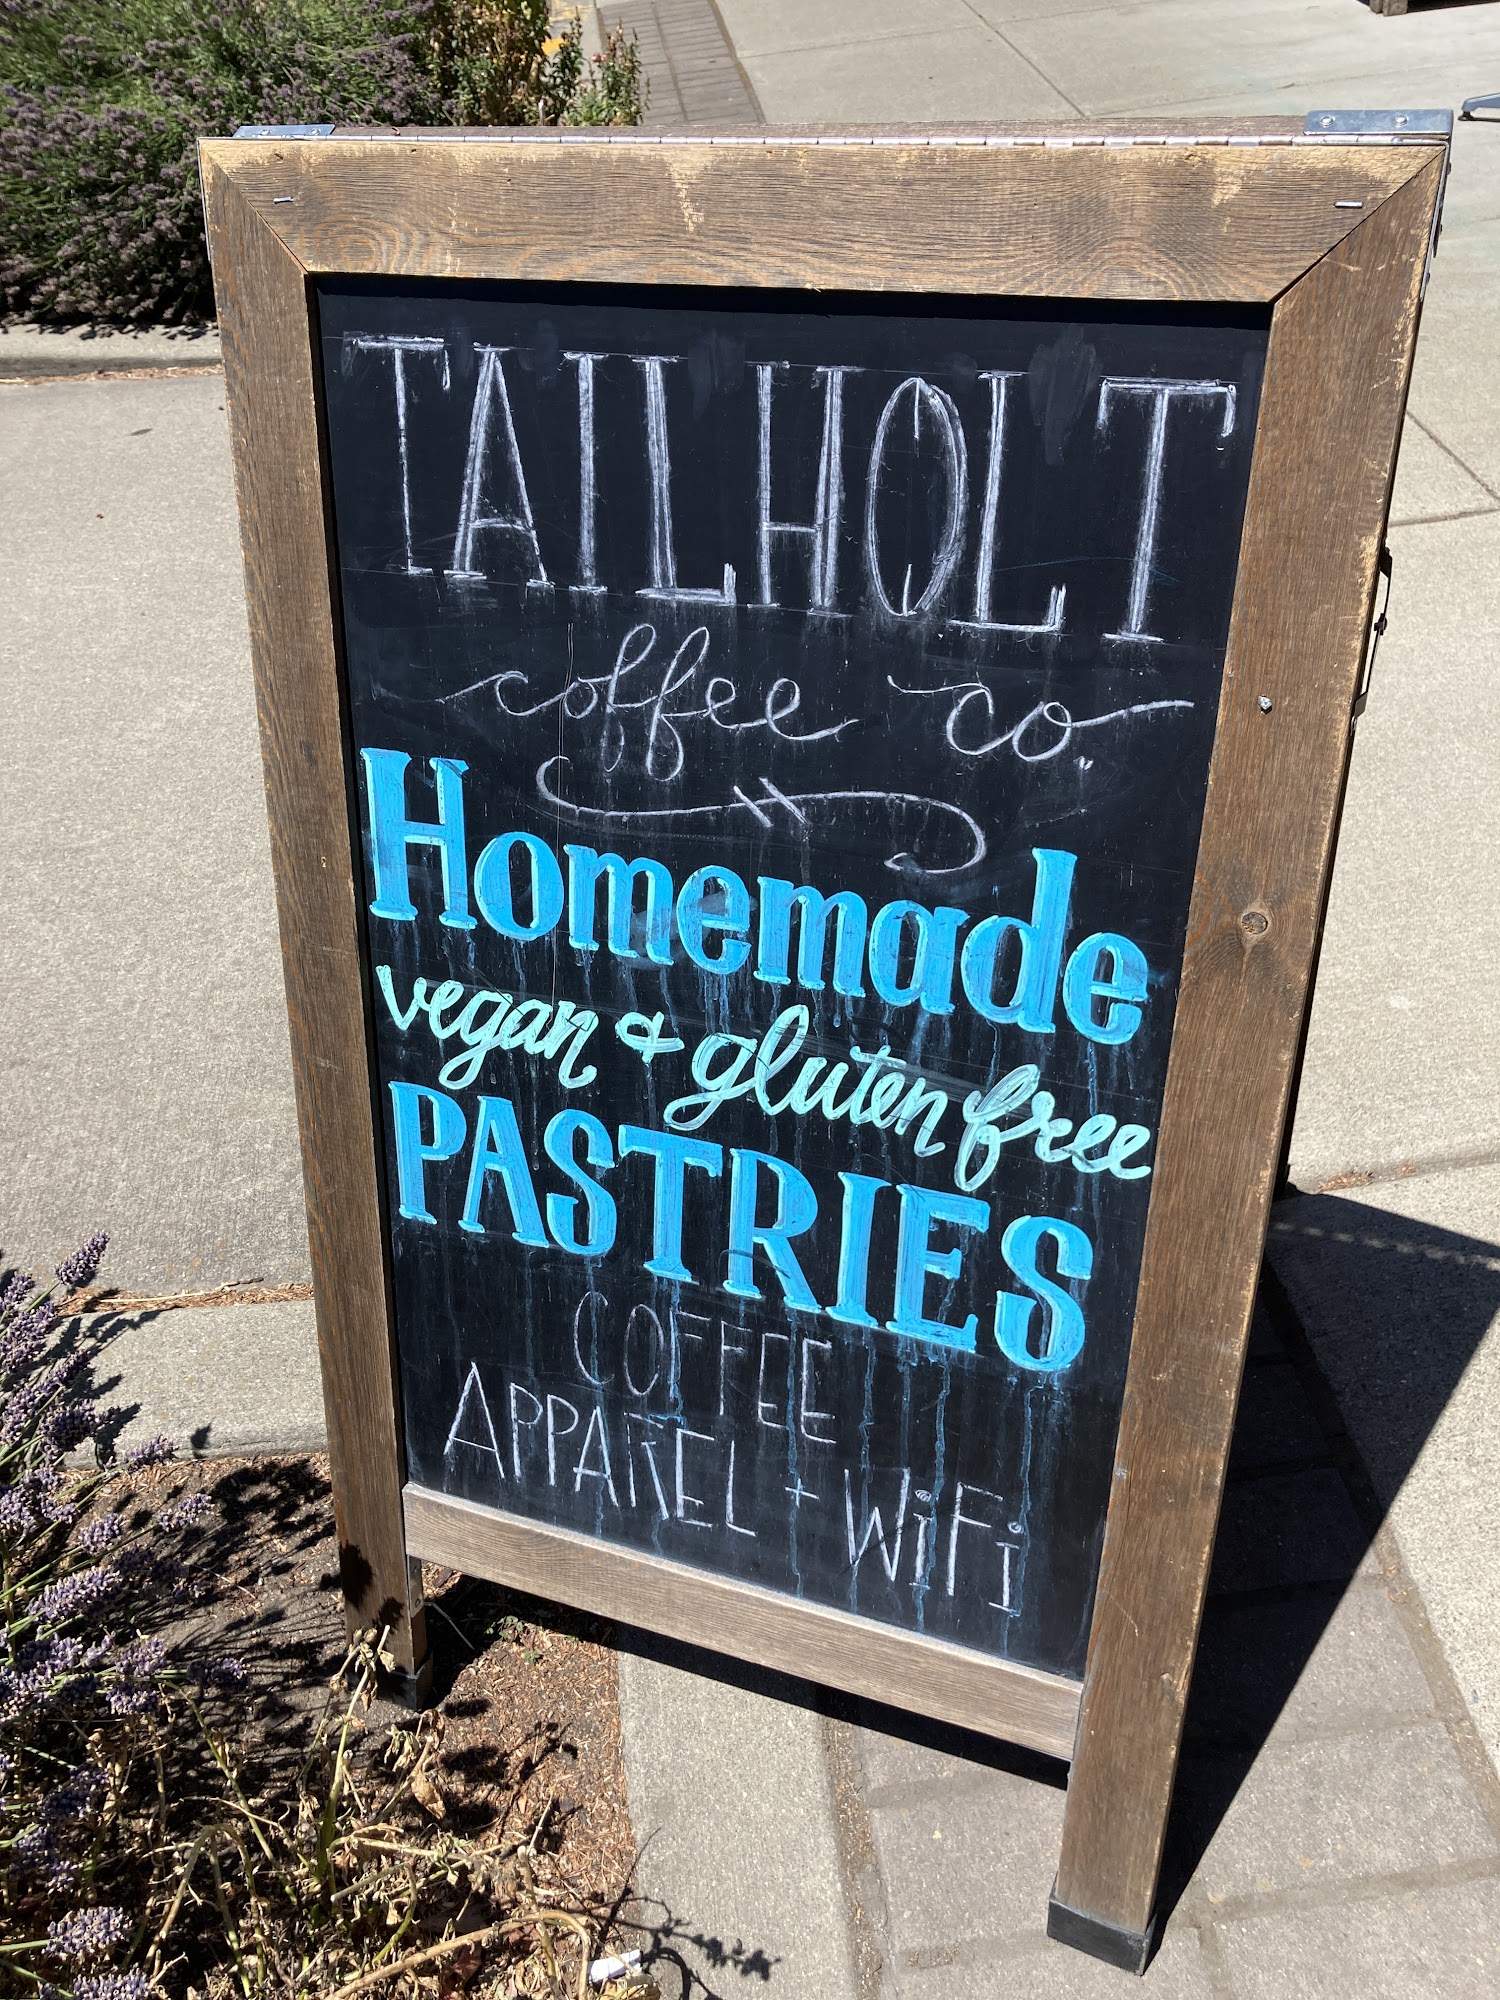 TAILHOLT
coffee co.
Homemade
vegan & gluten free
PASTRIES
COFFEE
APPAREL + WiFi